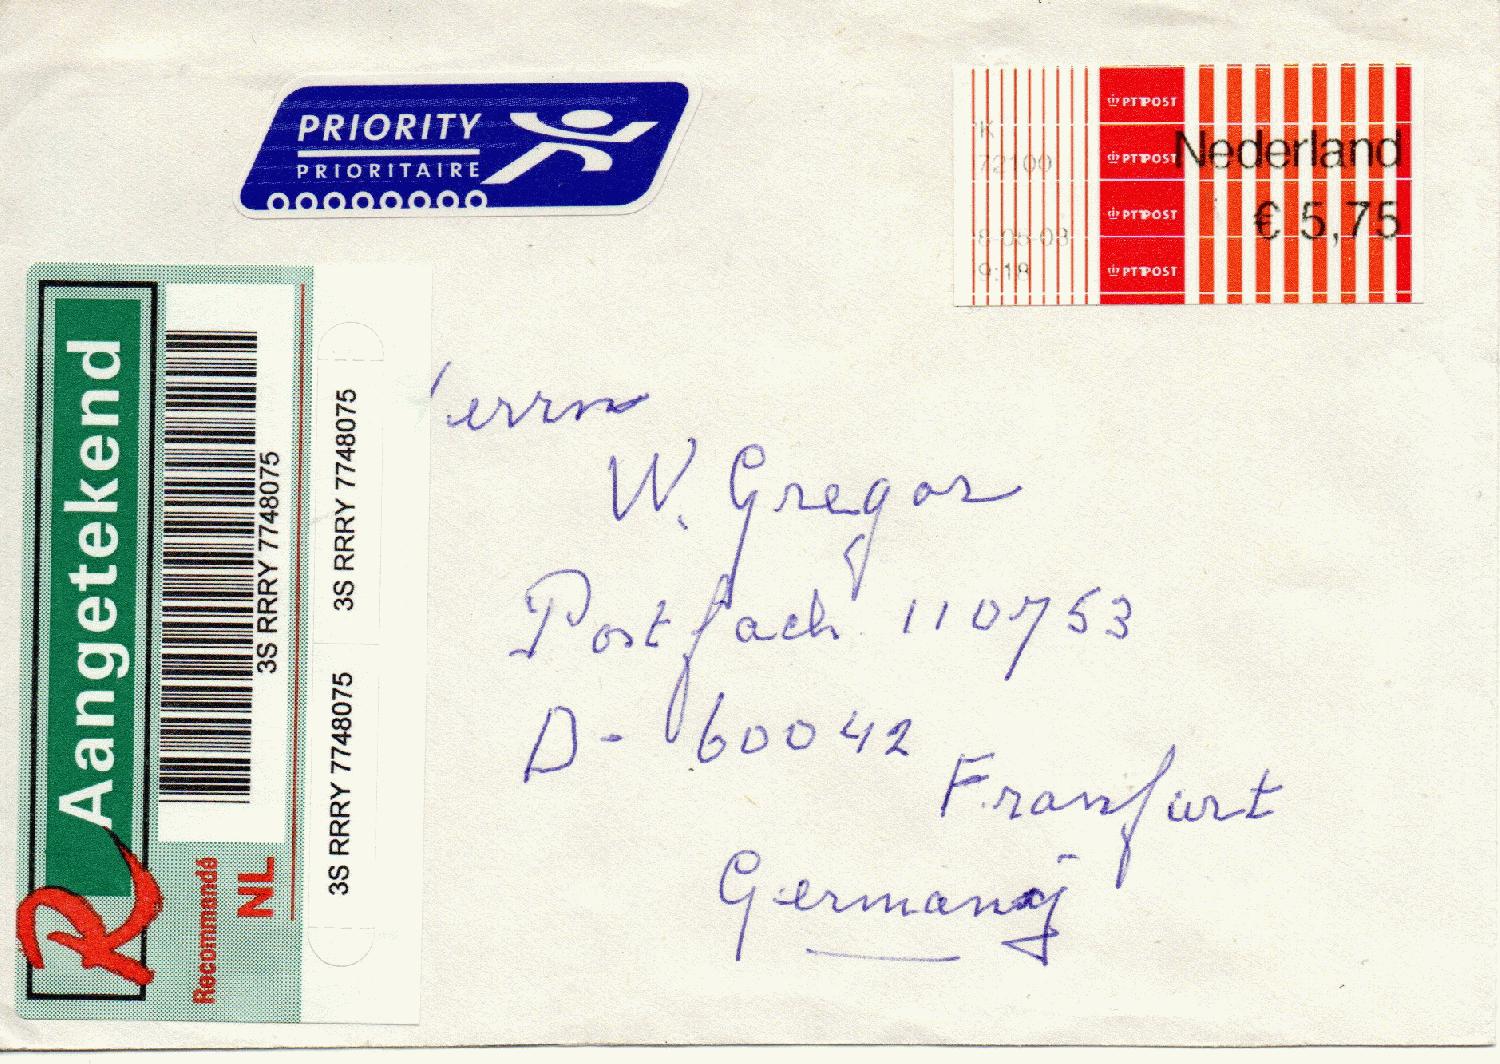 PRIORITY
PRIORITAIRE
K
72100
8 05 03
9:18
PTT POST
PTT POST
PTT POST
PTT POST
Nederland
€ 5,75
Aangetekend
R
Recommandé
NL
3S RRRY 7748075
3S RRRY 7748075
3S RRRY 7748075
errn
W. Gregor
Postfach 110753
D- 60042
Franfurt
Germany